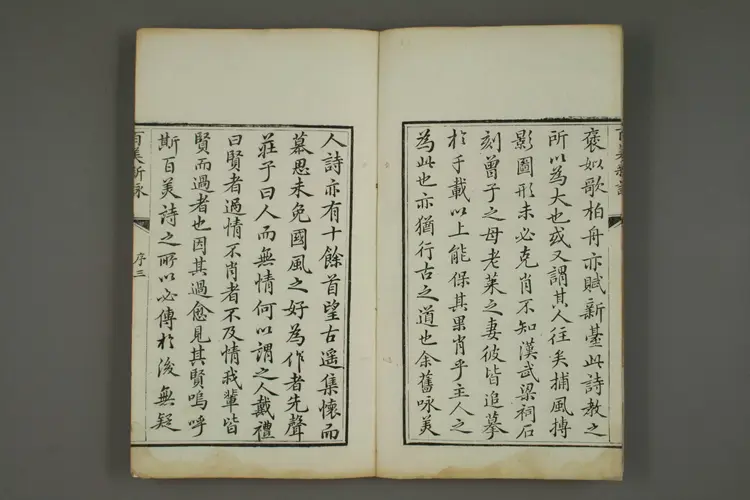 褒如歌柏舟亦賦新臺此詩教之
所以為大也或又謂其人往矣捕風摶
影圖形未必克肖不知漢武梁祠石
刻曾子之母老萊之妻彼皆追摹
於千載以上能保其果肖乎主人之
為此也亦猶行古之道也余舊咏美
人詩亦有十餘首望古遥集懷而
慕思未免國風之好為作者先聲
莊子曰人而無情何以謂之人戴禮
曰賢者過情不肖者不及情我輩皆
賢而過者也因其過愈見其賢嗚呼
斯百美詩之所以必傳於後無疑
百美新詠
序三